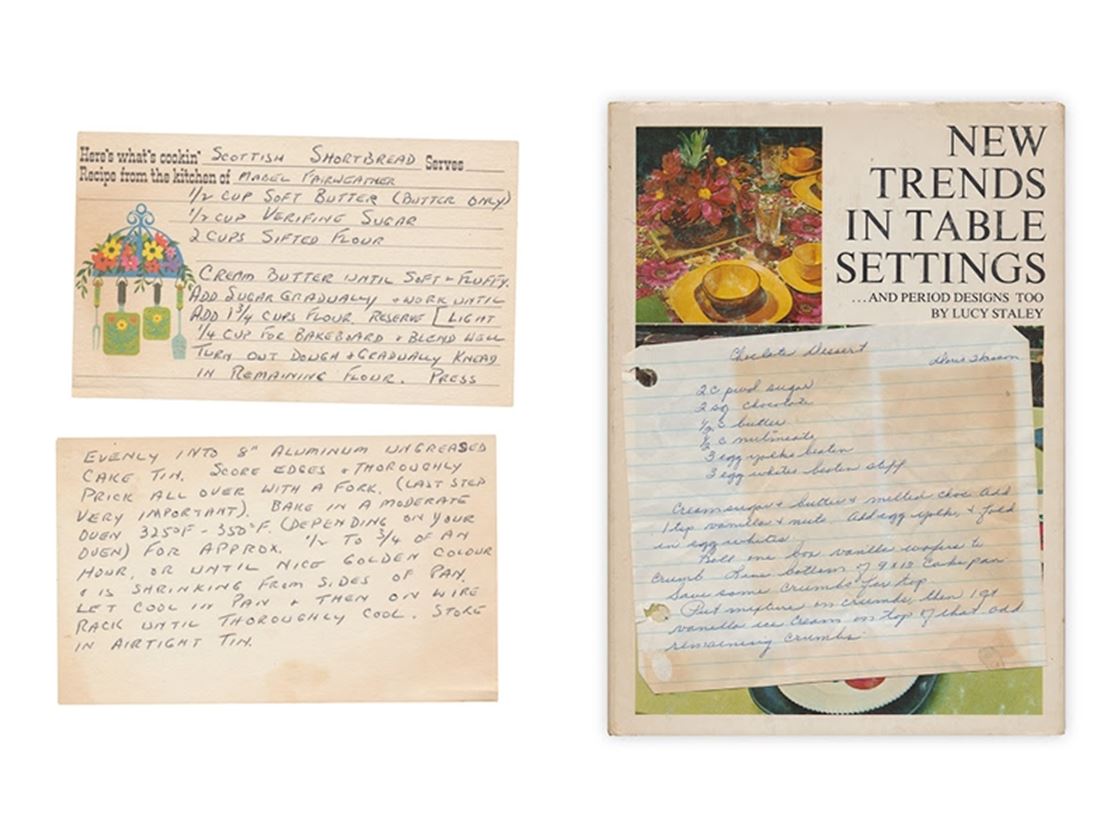 Here's what's cookin' SCOTTISH SHORTBREAD Serves
Recipe from the kitchen of MABEL FAIRWEATHER
1/2 CUP SOFT BUTTER (BUTTER ONLY)
1/2 CUP VERIFINE SUGAR
2 CUPS SIFTED FLOUR
CREAM BUTTER UNTIL SOFT + FLUFFY.
ADD SUGAR GRADUALLY + WORK UNTIL
ADD 1 3/4 CUPS FLOUR. RESERVE [LIGHT
1/4 CUP FOR BAKEBOARD + BLEND WELL
TURN OUT DOUGH + GRADUALLY KNEAD
IN REMAINING FLOUR. PRESS
EVENLY INTO 8" ALUMINUM UNGREASED
CAKE TIN. SCORE EDGES + THOROUGHLY
PRICK ALL OVER WITH A FORK. (LAST STEP
VERY IMPORTANT). BAKE IN A MODERATE
OVEN 325°F - 350°F. (DEPENDING ON YOUR
OVEN) FOR APPROX. 1/2 TO 3/4 OF AN
HOUR, OR UNTIL NICE GOLDEN COLOUR
+ IS SHRINKING FROM SIDES OF PAN.
LET COOL IN PAN + THEN ON WIRE
RACK UNTIL THOROUGHLY COOL. STORE
IN AIRTIGHT TIN.
NEW
TRENDS
IN TABLE
SETTINGS
...AND PERIOD DESIGNS TOO
BY LUCY STALEY
Choclate Dessert
Doris
2 c pwd sugar
2 sq chocolate
1/2 c butter
1/2 c nutmeats
3 egg yolks beaten
3 egg whites beaten stiff
Cream sugar & butter & melted choc add
1 tsp vanilla & nuts. Add egg yolks, & fold
in egg whites
Roll one box vanilla wafers to
crumb Line bottom of 9x12 cake pan
Save some crumbs for top
Put mixture on crumbs, then 1 qt
vanilla ice cream on top of that add
remaining crumbs.